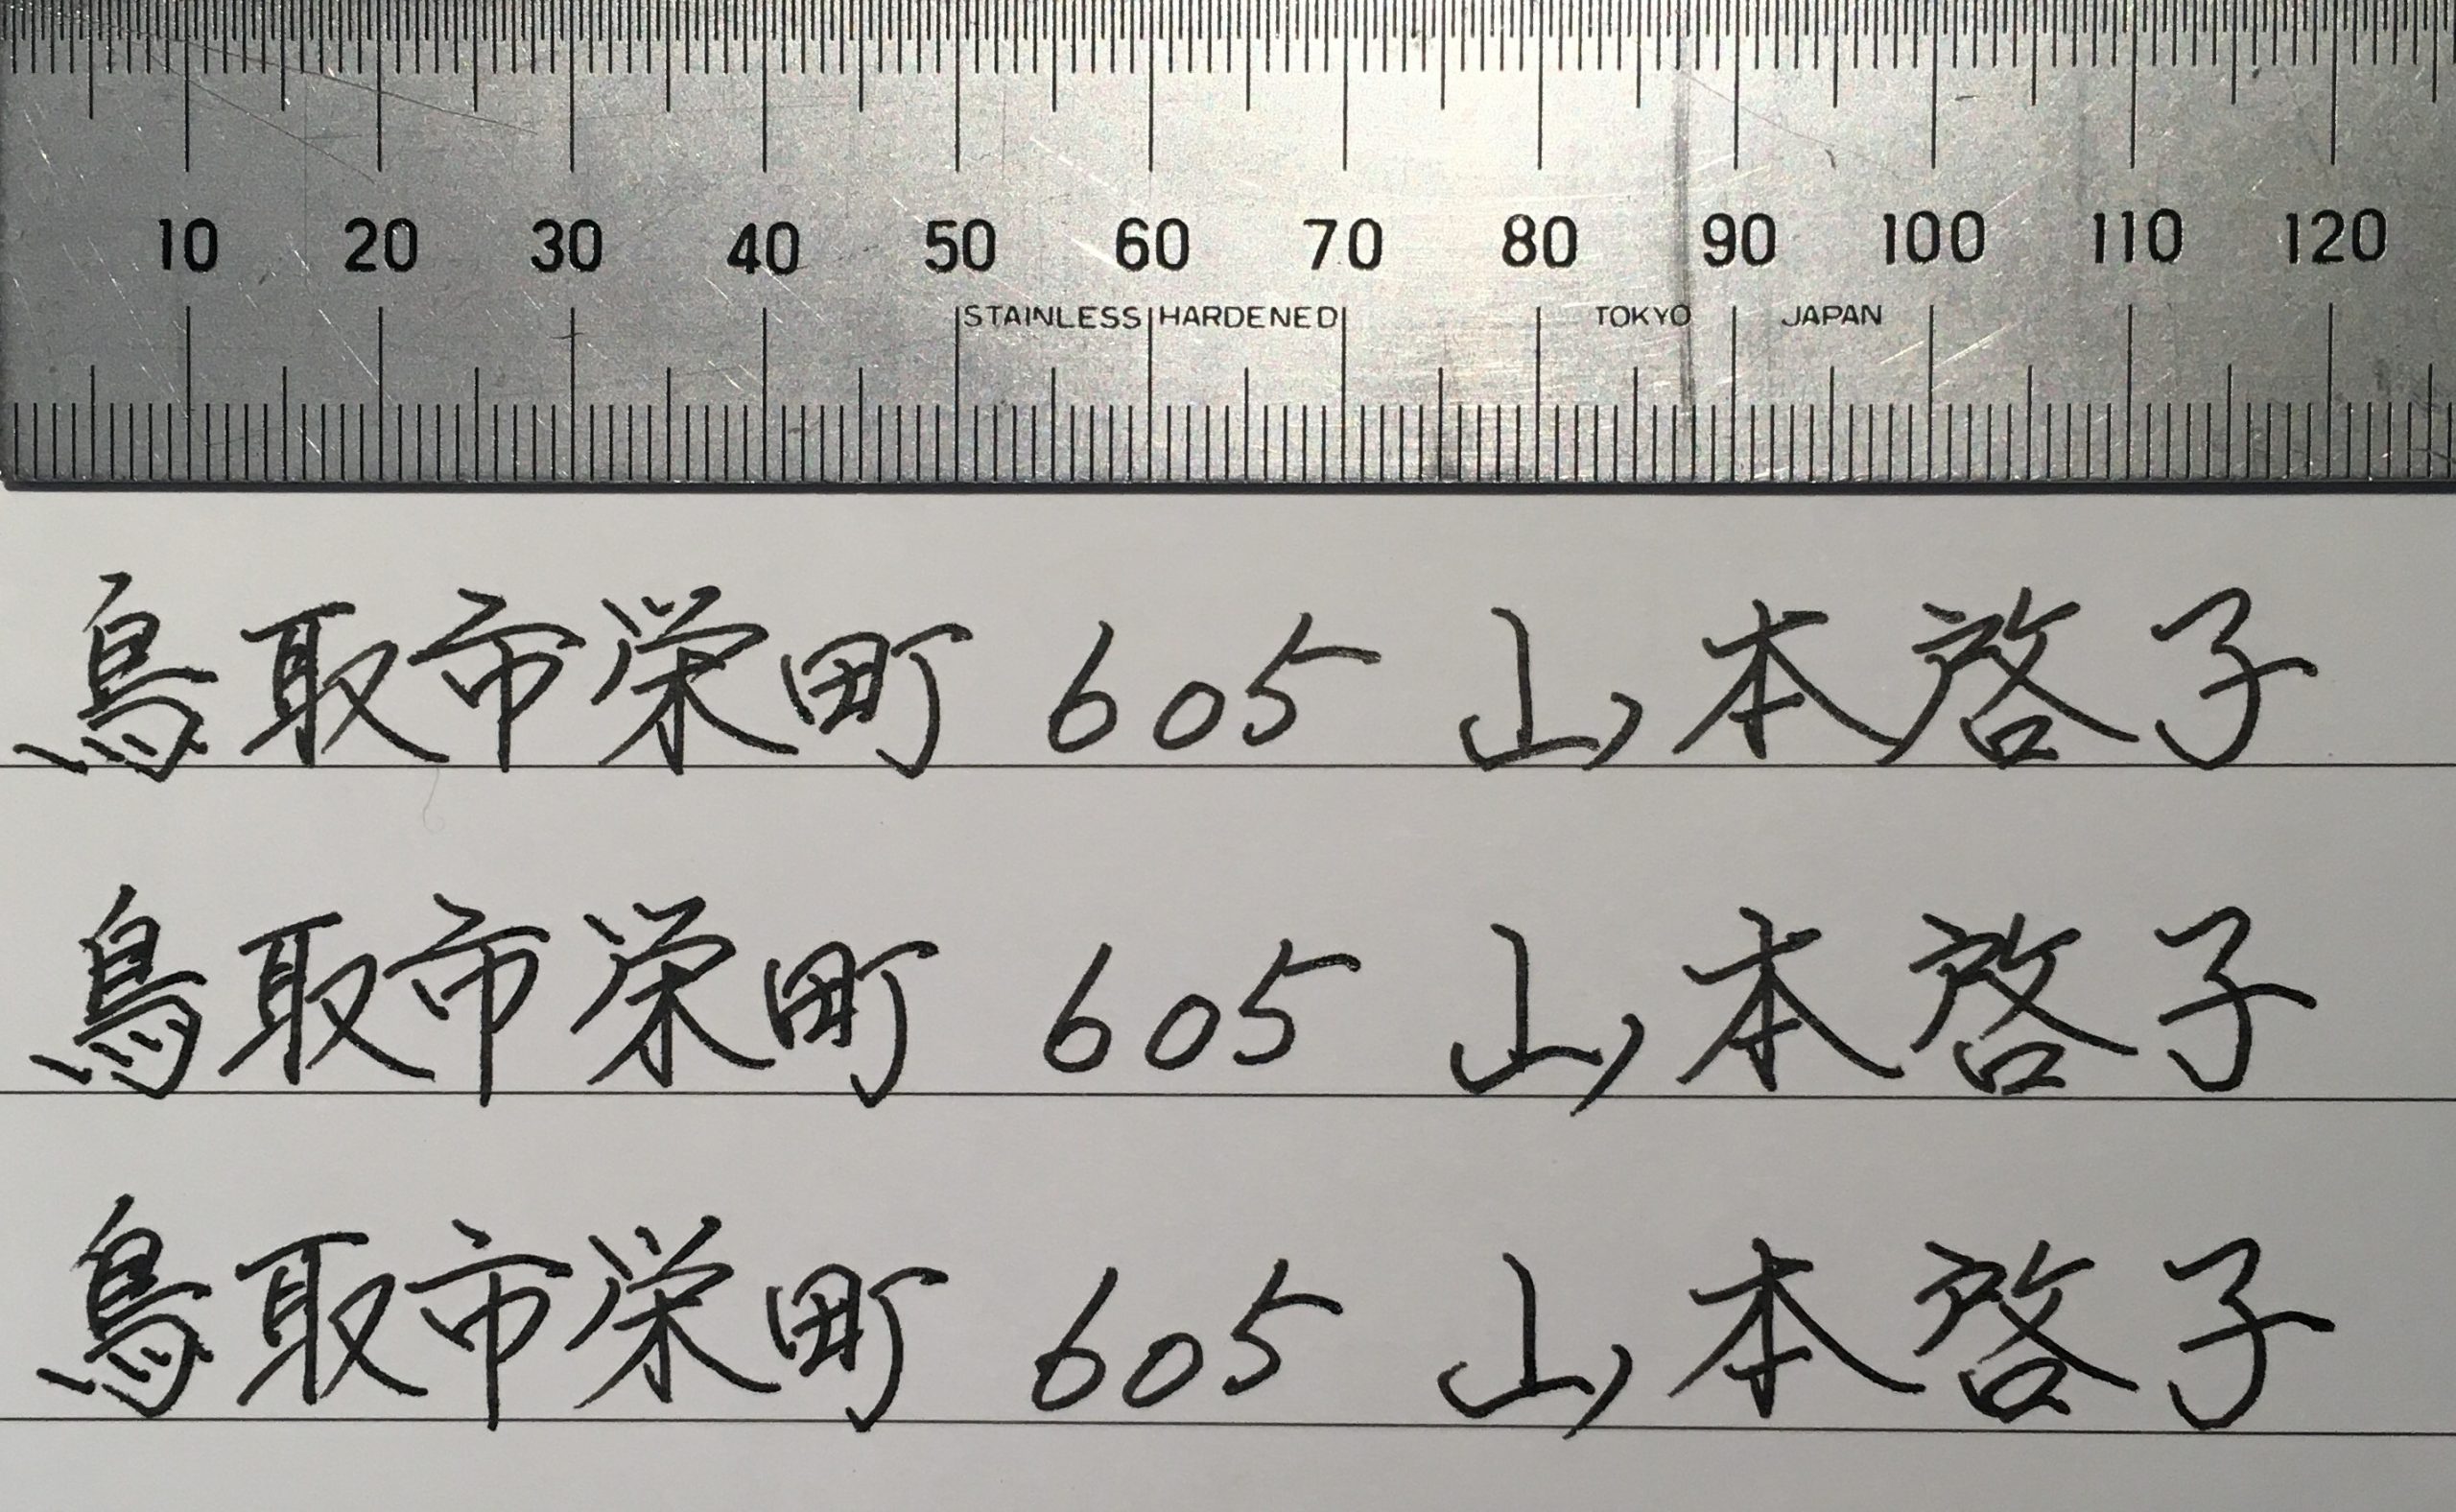 10 20 30 40 50 60 70 80 90 100 110 120
STAINLESS HARDENED TOKYO JAPAN
鳥取市栄町 605 山本啓子
鳥取市栄町 605 山本啓子
鳥取市栄町 605 山本啓子